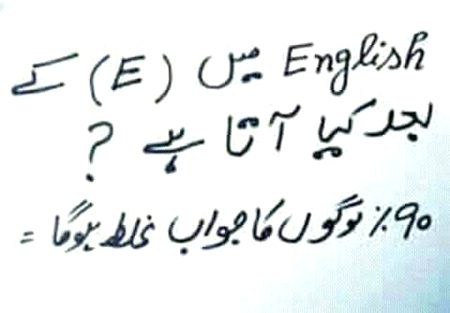 English میں (E) کے
بعد کیا آتا ہے ?
۹۰٪ لوگوں کا جواب غلط ہوگا =